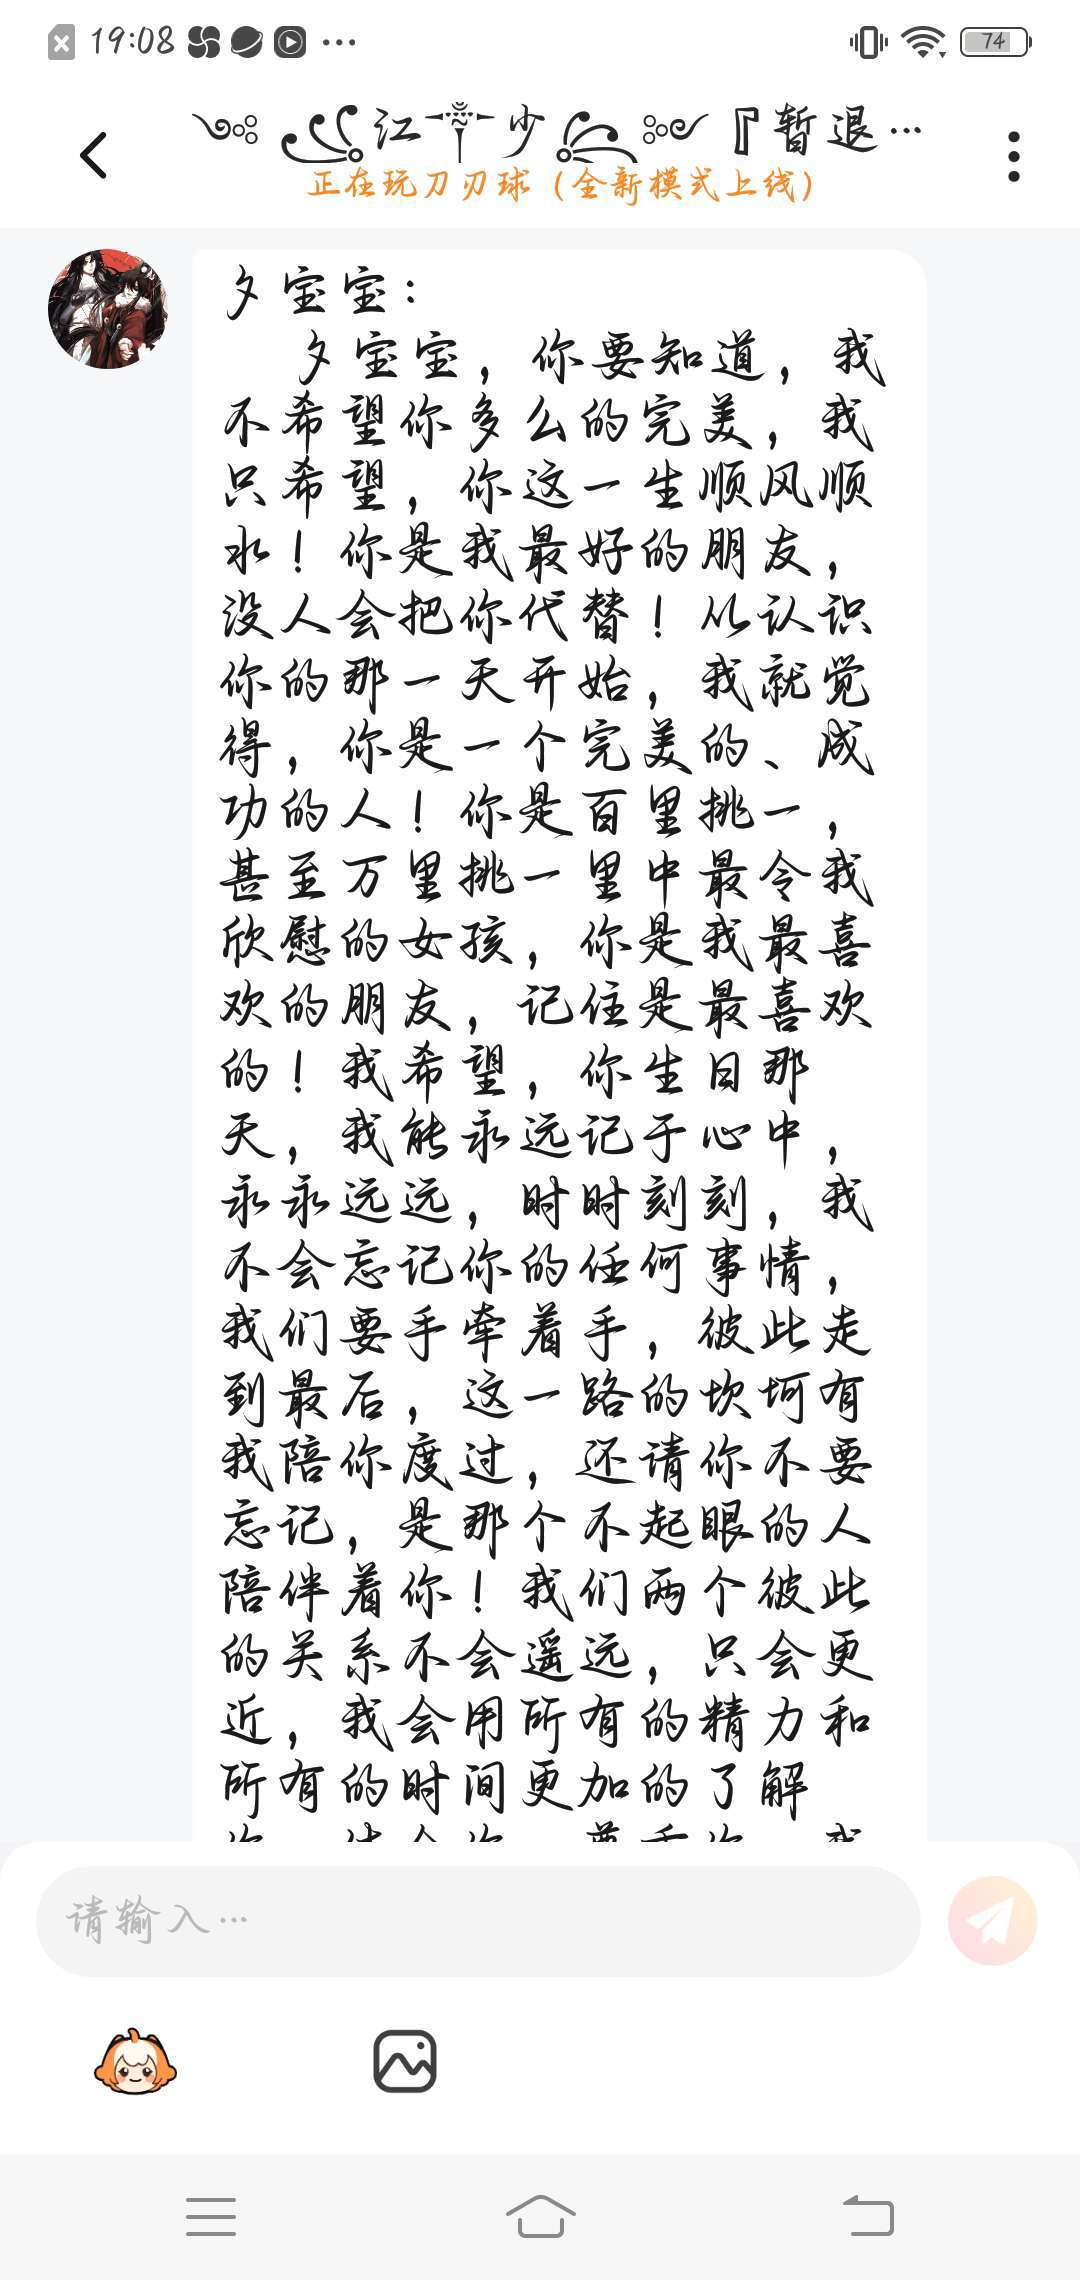 19:08
74
江 少 『暂退…
正在玩刀刃球（全新模式上线）
夕宝宝：
夕宝宝，你要知道，我
不希望你多么的完美，我
只希望，你这一生顺风顺
水！你是我最好的朋友，
没人会把你代替！从认识
你的那一天开始，我就觉
得，你是一个完美的、成
功的人！你是百里挑一，
甚至万里挑一里中最令我
欣慰的女孩，你是我最喜
欢的朋友，记住是最喜欢
的！我希望，你生日那
天，我能永远记于心中，
永永远远，时时刻刻，我
不会忘记你的任何事情，
我们要手牵着手，彼此走
到最后，这一路的坎坷有
我陪你度过，还请你不要
忘记，是那个不起眼的人
陪伴着你！我们两个彼此
的关系不会遥远，只会更
近，我会用所有的精力和
所有的时间更加的了解
请输入…